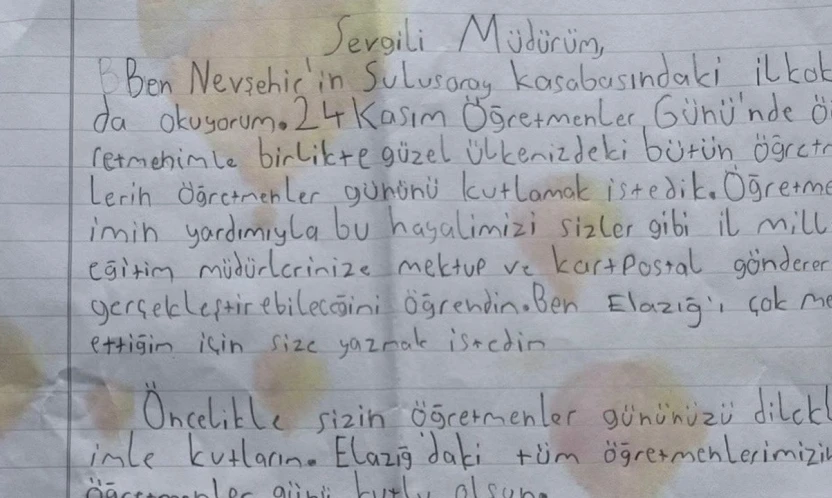 Sevgili Müdürüm,
Ben Nevşehir'in Sulusaray kasabasındaki ilkok
da okuyorum. 24 Kasım Öğretmenler Günü'nde ö
retmenimle birlikte güzel ülkenizdeki bütün öğretm
lerin öğretmenler gününü kutlamak istedik. Öğretme
imin yardımıyla bu hayalimizi sizler gibi il mill
eğitim müdürlerinize mektup ve kartpostal gönderer
gerçekleştirebileceğini öğrendin. Ben Elazığ'ı çok me
ettiğin için size yazmak istedin
Öncelikle sizin öğretmenler gününüzü dilekl
imle kutların. Elazığ'daki tüm öğretmenlerimizin
öğretmenler günü kutlu olsun.